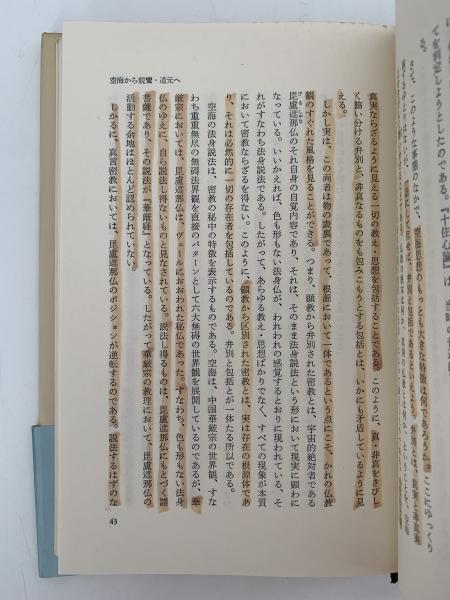 空海から親鸞・道元へ
真実ならざるように見える一切の教え・思想を包括することである。このように、真・非真をきびし
く篩い分ける弁別と、非真なるものをも包みこもうとする包括とは、いかにも矛盾しているように見
える。
しかし実は、この両者は物の表裏であって、根源において一体であるという点にこそ、かれの仏教
観のすぐれた風格を見ることができる。つまり、顕教から弁別された密教とは、宇宙的絶対者である
毘盧遮那仏のそれ自身の自覚内容であり、それは、そのまま法身説法という形において現実に顕わに
びるしゃな
なっている。いいかえれば、色も形もない法身仏が、われわれの感覚するとおりに現われている、そ
れがすなわち法身説法である。したがって、あらゆる教え・思想ばかりでなく、すべての現象が本質
において密教ならざるを得ない。このように、顕教から区別された密教とは、実は存在の根源体であ
り、それは必然的に一切の存在者を包括しているのである。弁別と包括とが一体たる所以である。
空海の法身説法は、密教の秘中の特徴を表示するものである。空海は、中国華厳宗の世界観、すな
わち重重無尽の無碍法界観を直接のパターンとして六大無碍の世界観を展開しているのであるが、華
厳宗においては、毘盧遮那仏は、ヴェールにおおわれた秘仏であった。すなわち、色も形もない法身
仏のゆえに、自ら説法し得ないものと見なされている。説法し得るものは、毘盧遮那仏にもとづく諸
菩薩であり、その説法が『華厳経』となっている。したがって華厳宗の教理において、毘盧遮那仏の
活動する余地はほとんど認められていない。
しかるに、真言密教においては、毘盧遮那仏のポジションが逆転するのである。説法するはずのな
43